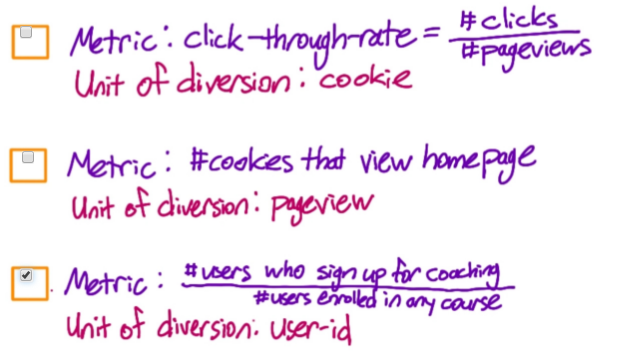 Metric: click-through-rate = #clicks / #pageviews
Unit of diversion: cookie
Metric: #cookies that view homepage
Unit of diversion: pageview
Metric: #users who sign up for coaching / #users enrolled in any course
Unit of diversion: user-id